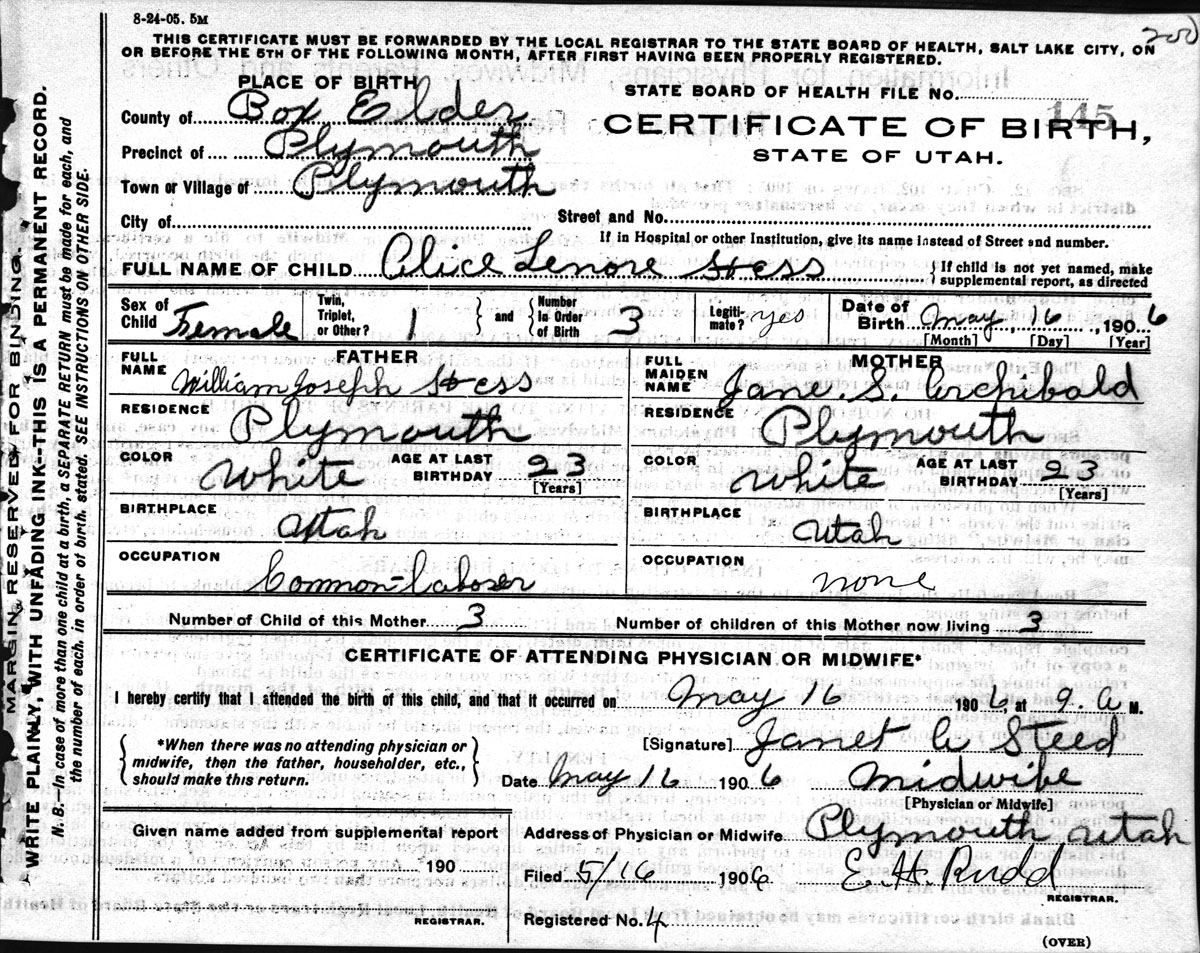 8-24-05. 5M
200
THIS CERTIFICATE MUST BE FORWARDED BY THE LOCAL REGISTRAR TO THE STATE BOARD OF HEALTH, SALT LAKE CITY, ON
OR BEFORE THE 5TH OF THE FOLLOWING MONTH, AFTER FIRST HAVING BEEN PROPERLY REGISTERED.
PLACE OF BIRTH
STATE BOARD OF HEALTH FILE No.
145
County of Box Elder
CERTIFICATE OF BIRTH,
Precinct of Plymouth
STATE OF UTAH.
Town or Village of Plymouth
City of
Street and No.
If in Hospital or other Institution, give its name instead of Street and number.
FULL NAME OF CHILD Alice Lenore Hess
{ If child is not yet named, make
supplemental report, as directed
Sex of Child Female
Twin, Triplet, or Other? 1 } and { Number in Order of Birth 3
Legiti-mate? yes
Date of Birth May 16, 1906
[Month] [Day] [Year]
FATHER
FULL NAME William Joseph Hess
RESIDENCE Plymouth
COLOR White
AGE AT LAST BIRTHDAY 23
[Years]
BIRTHPLACE Utah
OCCUPATION Common-Laborer
MOTHER
FULL MAIDEN NAME Jane. S. Archibald
RESIDENCE Plymouth
COLOR White
AGE AT LAST BIRTHDAY 23
[Years]
BIRTHPLACE Utah
OCCUPATION none
Number of Child of this Mother 3
Number of children of this Mother now living 3
CERTIFICATE OF ATTENDING PHYSICIAN OR MIDWIFE*
I hereby certify that I attended the birth of this child, and that it occurred on May 16 1906 at 9. A M.
{ *When there was no attending physician or
midwife, then the father, householder, etc.,
should make this return. }
[Signature] Janet A Steed
Date May 16 1906 Midwife
[Physician or Midwife]
Given name added from supplemental report
190
REGISTRAR.
Address of Physician or Midwife Plymouth Utah
Filed 5/16 1906 E. H. Rudd
REGISTRAR.
Registered No. 4
(OVER)
MARGIN RESERVED FOR BINDING.
WRITE PLAINLY, WITH UNFADING INK--THIS IS A PERMANENT RECORD.
N. B.--In case of more than one child at a birth, a SEPARATE RETURN must be made for each, and
the number of each, in order of birth, stated. SEE INSTRUCTIONS ON OTHER SIDE.